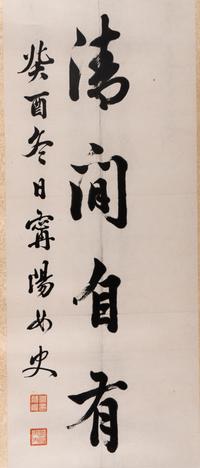 清閒自有
癸酉冬日甯陽女史